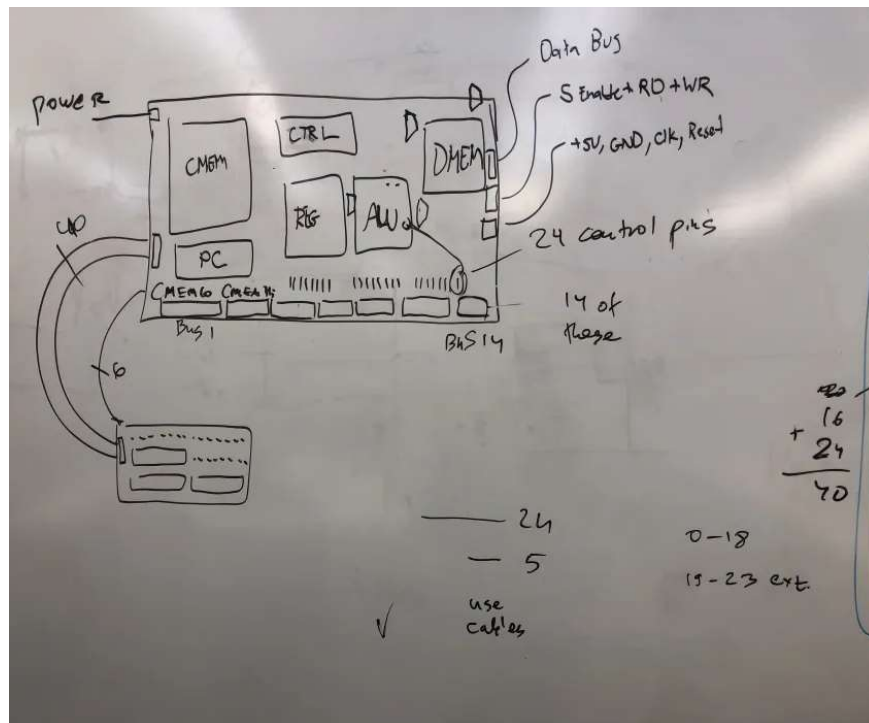 Data Bus
5 Enable + RD + WR
power
+5V, GND, Clk, Reset
CTRL
CMEM
DMEM
REG
ALU
24 control pins
40
PC
CMEMLo CMEMHi
14 of
these
Bus 1
Bus 14
6
16
+ 24
40
24
0-18
5
19-23 ext.
use
cables